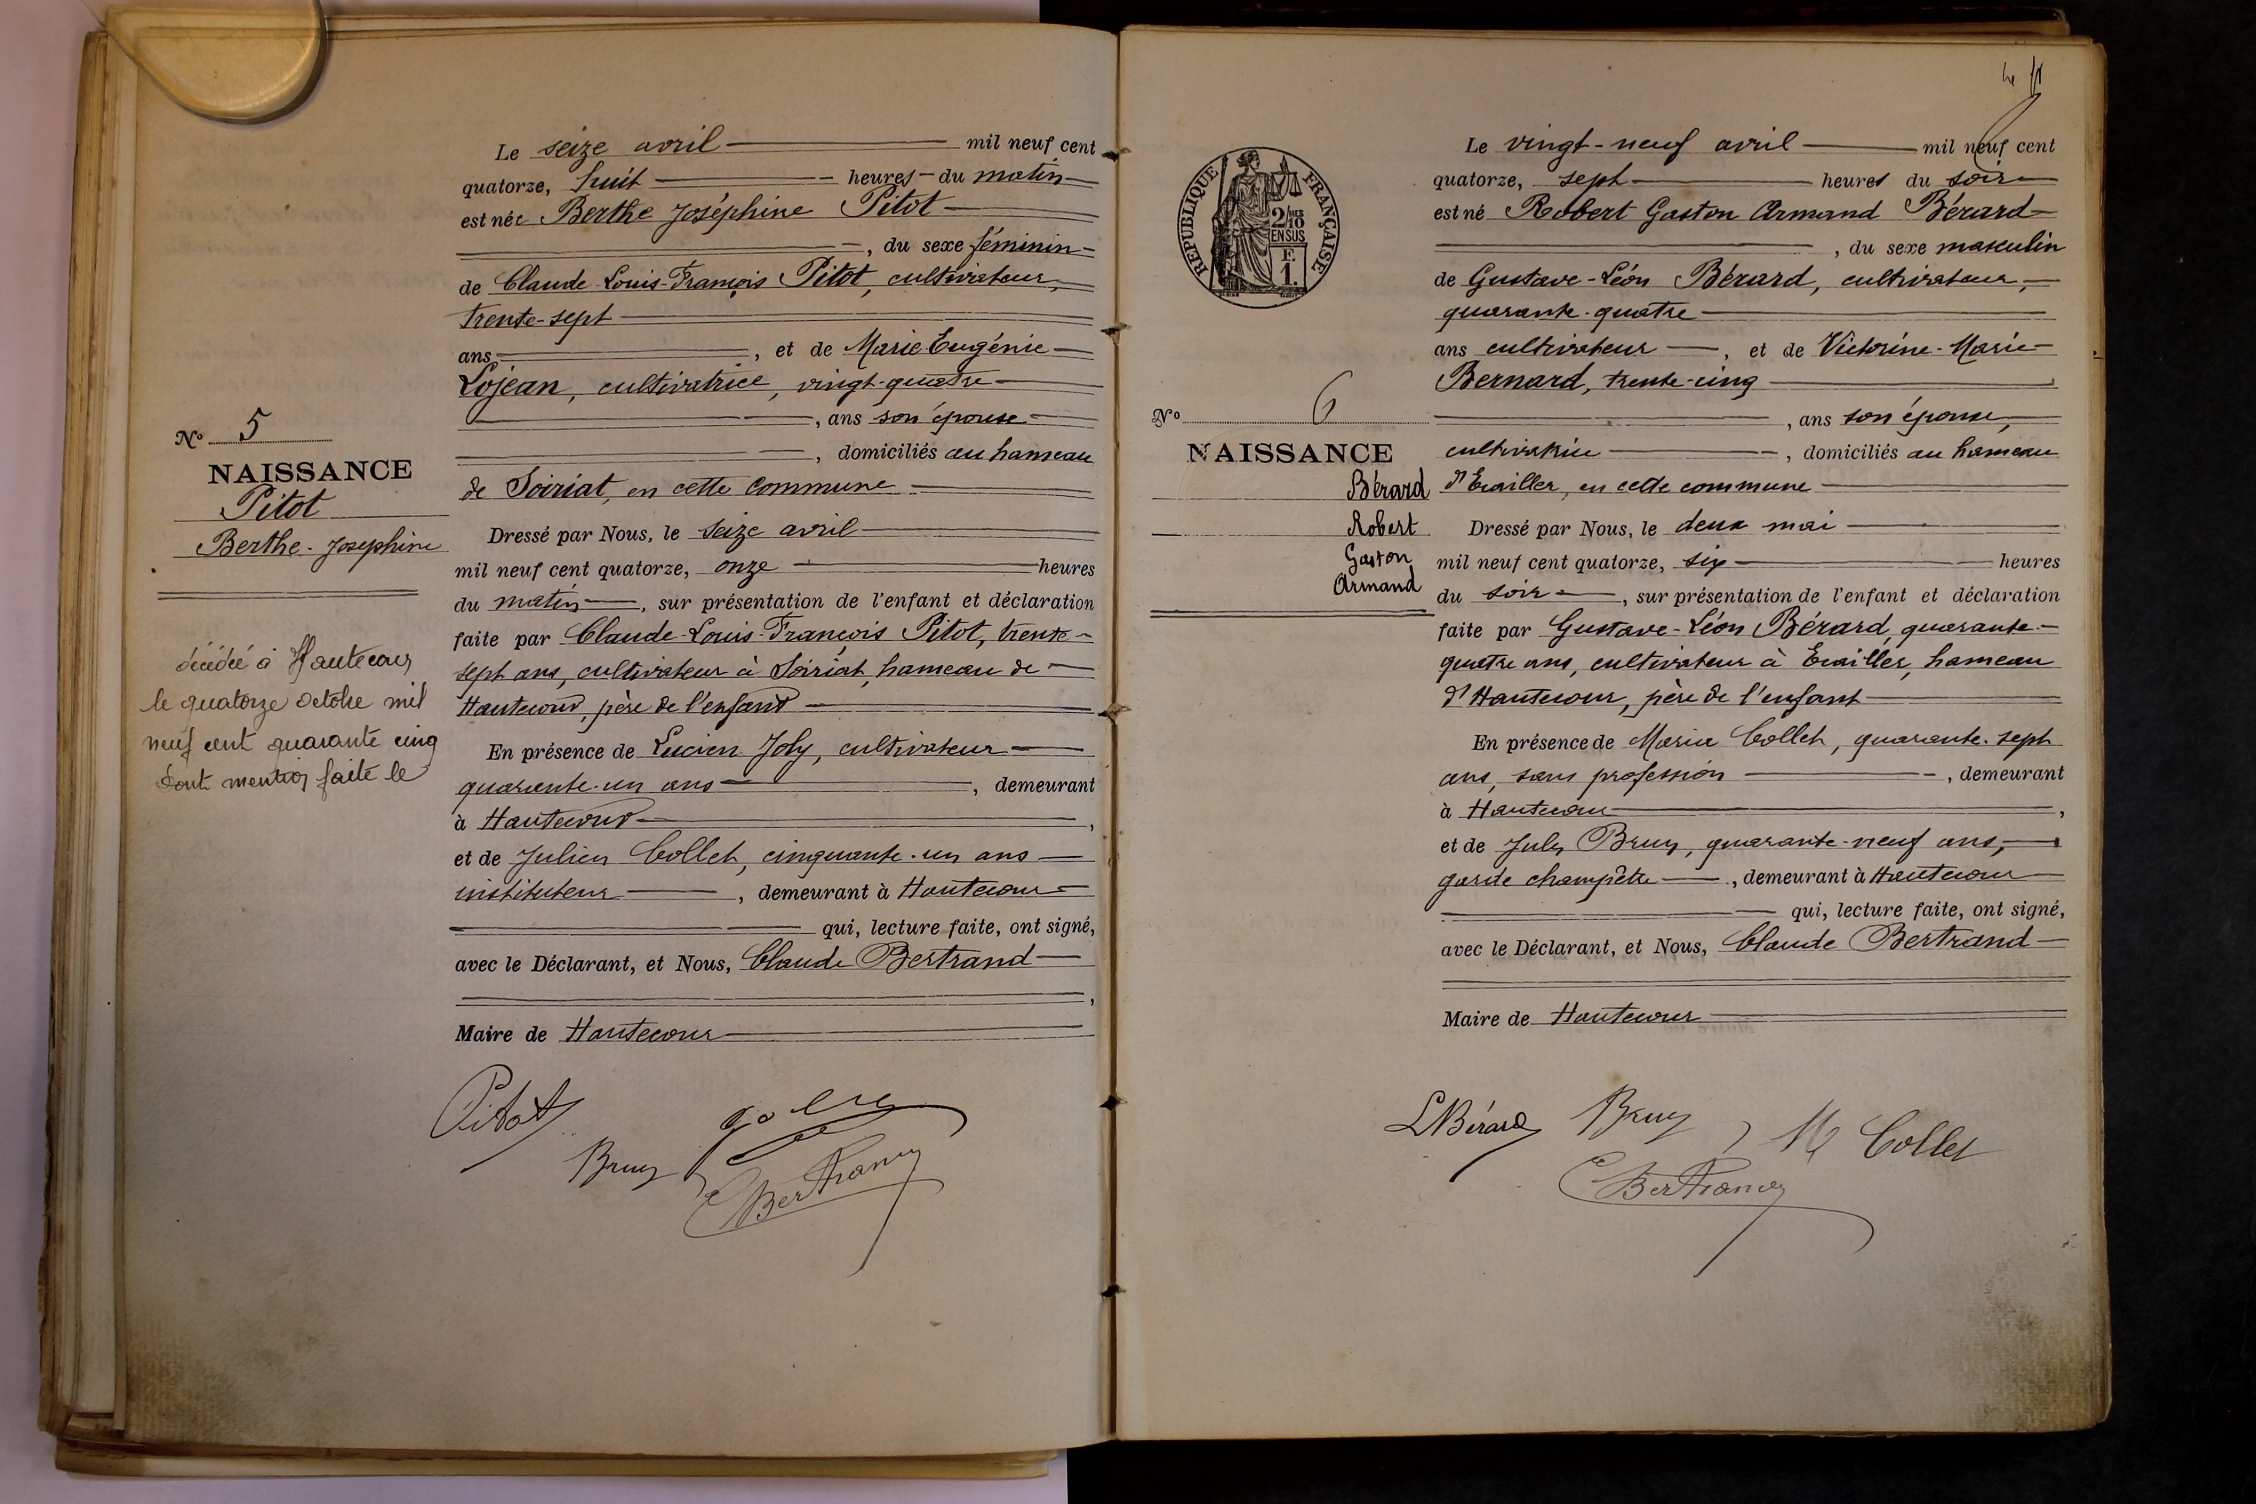 Le seize avril mil neuf cent
quatorze, huit heures du matin
est née Berthe Joséphine Pitot
, du sexe féminin
de Claude-Louis-François Pitot, cultivateur,
trente-sept
ans, et de Marie Eugénie
Lojean, cultivatrice, vingt-quatre
, ans son épouse
, domiciliés au hameau
de Soiriat, en cette commune
Dressé par Nous, le seize avril
mil neuf cent quatorze, onze heures
du matin, sur présentation de l'enfant et déclaration
faite par Claude-Louis-François Pitot, trente-
sept ans, cultivateur à Soiriat, hameau de
Hautecour, père de l'enfant
En présence de Lucien Joly, cultivateur
quarante-un ans, demeurant
à Hautecour,
et de Julien Collet, cinquante-un ans
instituteur, demeurant à Hautecour
qui, lecture faite, ont signé,
avec le Déclarant, et Nous, Claude Bertrand
,
Maire de Hautecour
Pitot
Bruy
CBertrand
No 5
NAISSANCE
Pitot
Berthe-Josephine
décédée à Hautecour
le quatorze octobre mil
neuf cent quarante cinq
Dont mention faite le
4
RÉPUBLIQUE FRANÇAISE
2/10
EN SUS
F.
1.
No 6
NAISSANCE
Bérard
Robert
Gaston
Armand
Le vingt-neuf avril mil neuf cent
quatorze, sept heures du soir
est né Robert Gaston Armand Bérard
, du sexe masculin
de Gustave-Léon Bérard, cultivateur,
quarante-quatre
ans cultivateur, et de Victorine-Marie
Bernard, trente-cinq
, ans son épouse,
cultivatrice, domiciliés au hameau
d'Evailler, en cette commune
Dressé par Nous, le deux mai
mil neuf cent quatorze, six heures
du soir, sur présentation de l'enfant et déclaration
faite par Gustave-Léon Bérard, quarante-
quatre ans, cultivateur à Evailler, hameau
d'Hautecour, père de l'enfant
En présence de Maria Collet, quarante-sept
ans, sans profession, demeurant
à Hautecour,
et de Jules Bruy, quarante-neuf ans,
garde champêtre, demeurant à Hautecour
qui, lecture faite, ont signé,
avec le Déclarant, et Nous, Claude Bertrand
Maire de Hautecour
LBérard Bruy M Collet
CBertrand